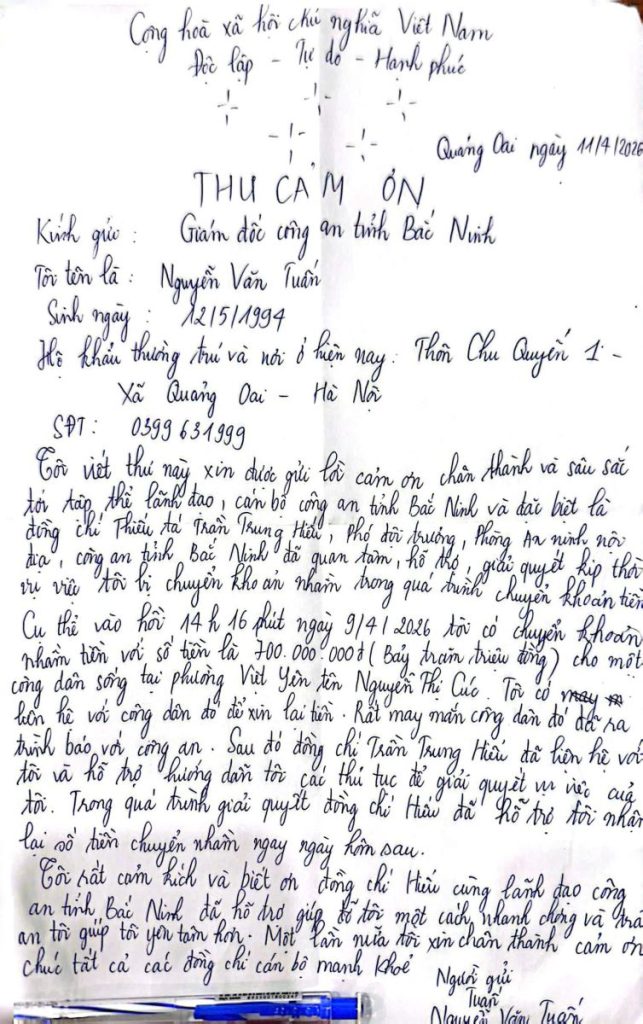 Cộng hoà xã hội chủ nghĩa Việt Nam
Độc lập - Tự do - Hạnh phúc
Quảng Oai ngày 11/4/2026
THƯ CẢM ƠN
Kính gửi : Giám đốc công an tỉnh Bắc Ninh
Tôi tên là : Nguyễn Văn Tuấn
Sinh ngày : 12/5/1994
Hộ khẩu thường trú và nơi ở hiện nay : Thôn Chu Quyến 1 -
Xã Quảng Oai - Hà Nội
SĐT : 0399 631999
Tôi viết thư này xin được gửi lời cảm ơn chân thành và sâu sắc
tới tập thể lãnh đạo, cán bộ công an tỉnh Bắc Ninh và đặc biệt là
đồng chí Thiếu tá Trần Trung Hiếu, Phó đội trưởng, Phòng An ninh nội
địa, công an tỉnh Bắc Ninh đã quan tâm, hỗ trợ, giải quyết kịp thời
vụ việc tôi bị chuyển khoản nhầm trong quá trình chuyển khoản tiền
Cụ thể vào hồi 14h 16 phút ngày 9/4/2026 tôi có chuyển khoản
nhầm tiền với số tiền là 700.000.000đ (Bảy trăm triệu đồng) cho một
công dân sống tại phường Việt Yên tên Nguyễn Thị Cúc. Tôi có
liên hệ với công dân đó để xin lại tiền. Rất may mắn công dân đó đã ra
trình báo với công an. Sau đó đồng chí Trần Trung Hiếu đã liên hệ với
tôi và hỗ trợ hướng dẫn tôi các thủ tục để giải quyết vụ việc của
tôi. Trong quá trình giải quyết đồng chí Hiếu đã hỗ trợ tôi nhận
lại số tiền chuyển nhầm ngay ngày hôm sau.
Tôi rất cảm kích và biết ơn đồng chí Hiếu cùng lãnh đạo công
an tỉnh Bắc Ninh đã hỗ trợ giúp đỡ tôi một cách nhanh chóng và trấn
an tôi giúp tôi yên tâm hơn. Một lần nữa tôi xin chân thành cảm ơn
chúc tất cả các đồng chí cán bộ mạnh khoẻ
Người gửi
Tuấn
Nguyễn Văn Tuấn